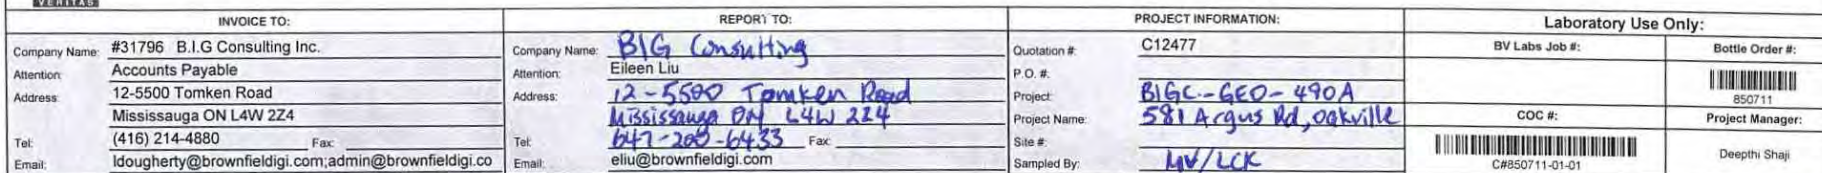 VERITAS
INVOICE TO:
Company Name: #31796 B.I.G Consulting Inc.
Attention: Accounts Payable
Address: 12-5500 Tomken Road
Mississauga ON L4W 2Z4
Tel: (416) 214-4880 Fax:
Email: ldougherty@brownfieldigi.com;admin@brownfieldigi.co
REPORT TO:
Company Name: BIG Consulting
Attention: Eileen Liu
Address: 12-5500 Tomken Road
Mississauga ON L4W 2Z4
Tel: 647-200-6433 Fax:
Email: eliu@brownfieldigi.com
PROJECT INFORMATION:
Quotation #: C12477
P.O. #:
Project: BIGC-GEO-490A
Project Name: 581 Argus Rd, Oakville
Site #:
Sampled By: /LCK
Laboratory Use Only:
BV Labs Job #:
Bottle Order #:
850711
COC #:
Project Manager:
C#850711-01-01
Deepthi Shaji